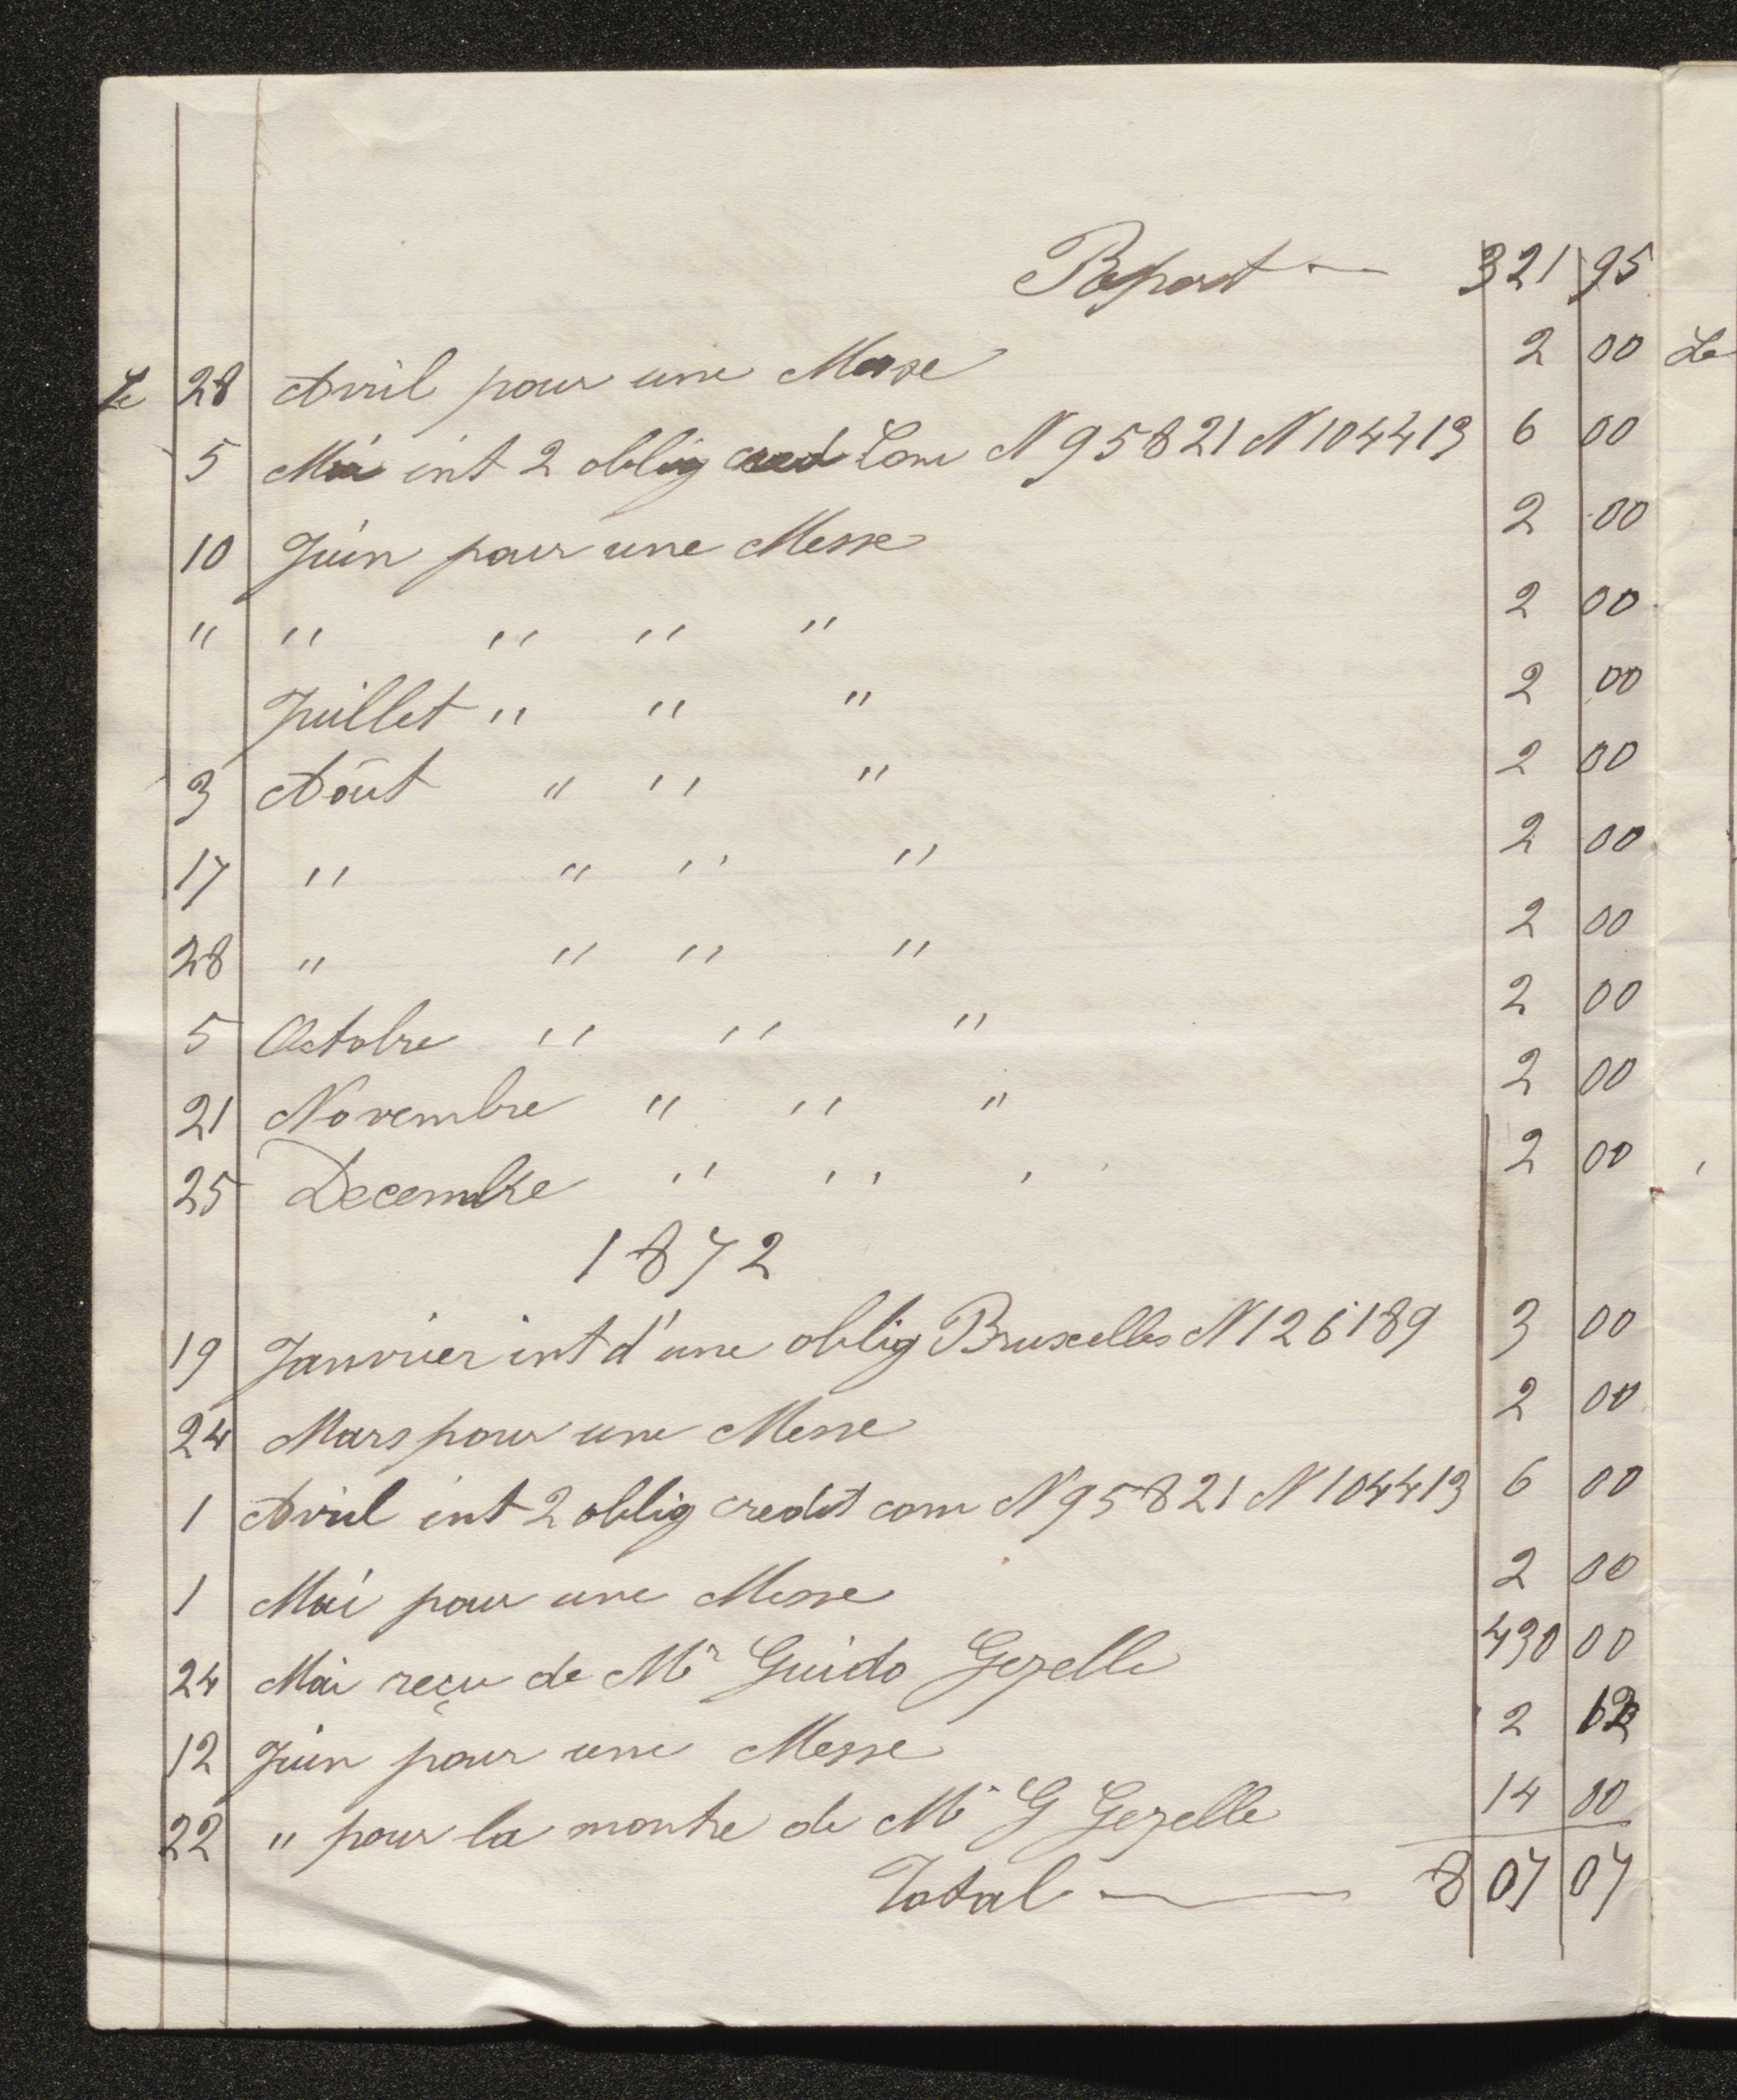 Report — 321 95
Le 28 Avril pour une Messe 2 00
5 Mai int 2 oblig cred Com N 95821 N 104413 6 00
10 Juin pour une Messe 2 00
" " " " " 2 00
Juillet " " " 2 00
3 Août " " " 2 00
17 " " " " 2 00
28 " " " " 2 00
5 Octobre " " " 2 00
21 Novembre " " " 2 00
25 Decembre " " " 2 00
1872
19 Janvier int d'une oblig Bruxelles N 126189 3 00
24 Mars pour une Messe 2 00
1 Avril int 2 oblig credit com N 95821 N 104413 6 00
1 Mai pour une Messe 2 00
24 Mai reçu de Mr Guido Gezelle 430 00
12 Juin pour une Messe 2 12
22 " pour la montre de Mr G Gezelle 14 00
Total — 807 07
Le